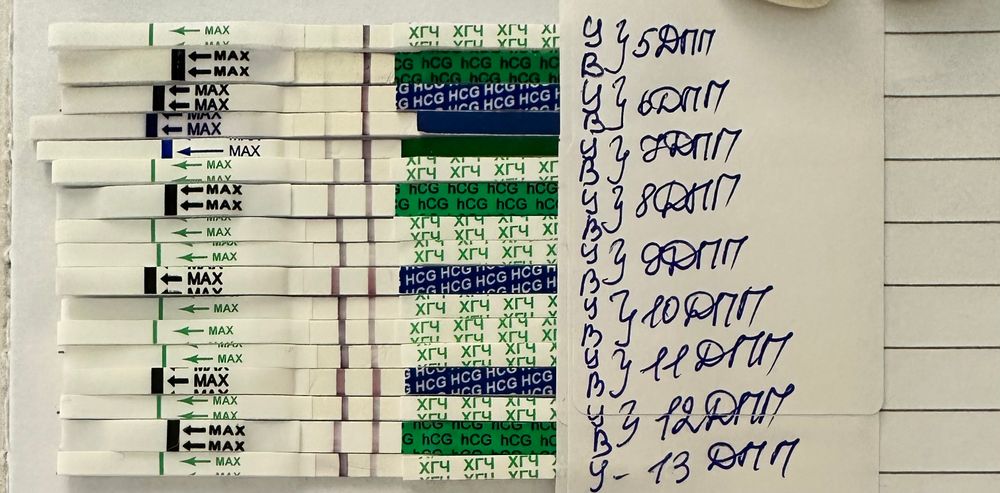 MAX ХГЧ ХГЧ ХГЧ
MAX hCG hCG hCG
MAX
MAX HCG HCG HCG
MAX
MAX
MAX
MAX ХГЧ ХГЧ ХГЧ
MAX hCG hCG hCG
MAX
MAX ХГЧ ХГЧ ХГЧ
MAX ХГЧ ХГЧ ХГЧ
MAX HCG HCG HCG HCG
MAX ХГЧ ХГЧ ХГЧ
MAX ХГЧ ХГЧ ХГЧ
MAX ХГЧ ХГЧ ХГЧ
MAX HCG HCG HCG HCG
MAX ХГЧ ХГЧ ХГЧ
MAX hCG hCG hCG
MAX
MAX ХГЧ ХГЧ ХГЧ
У
В } 5ДПП
У
В } 6ДПП
У
В } 7ДПП
У
В } 8ДПП
У
В } 9ДПП
У
В } 10ДПП
У
В } 11ДПП
У
В } 12ДПП
У - 13 ДПП